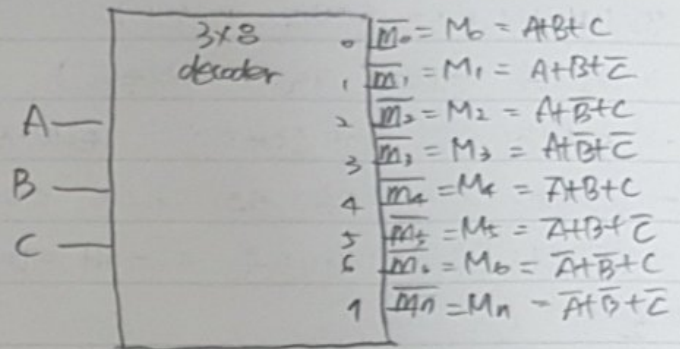 3x8
decoder
A
B
C
0 m̅₀ = M₀ = A+B+C
1 m̅₁ = M₁ = A+B+C̅
2 m̅₂ = M₂ = A+B̅+C
3 m̅₃ = M₃ = A+B̅+C̅
4 m̅₄ = M₄ = A̅+B+C
5 m̅₅ = M₅ = A̅+B+C̅
6 m̅₆ = M₆ = A̅+B̅+C
7 m̅₇ = M₇ = A̅+B̅+C̅